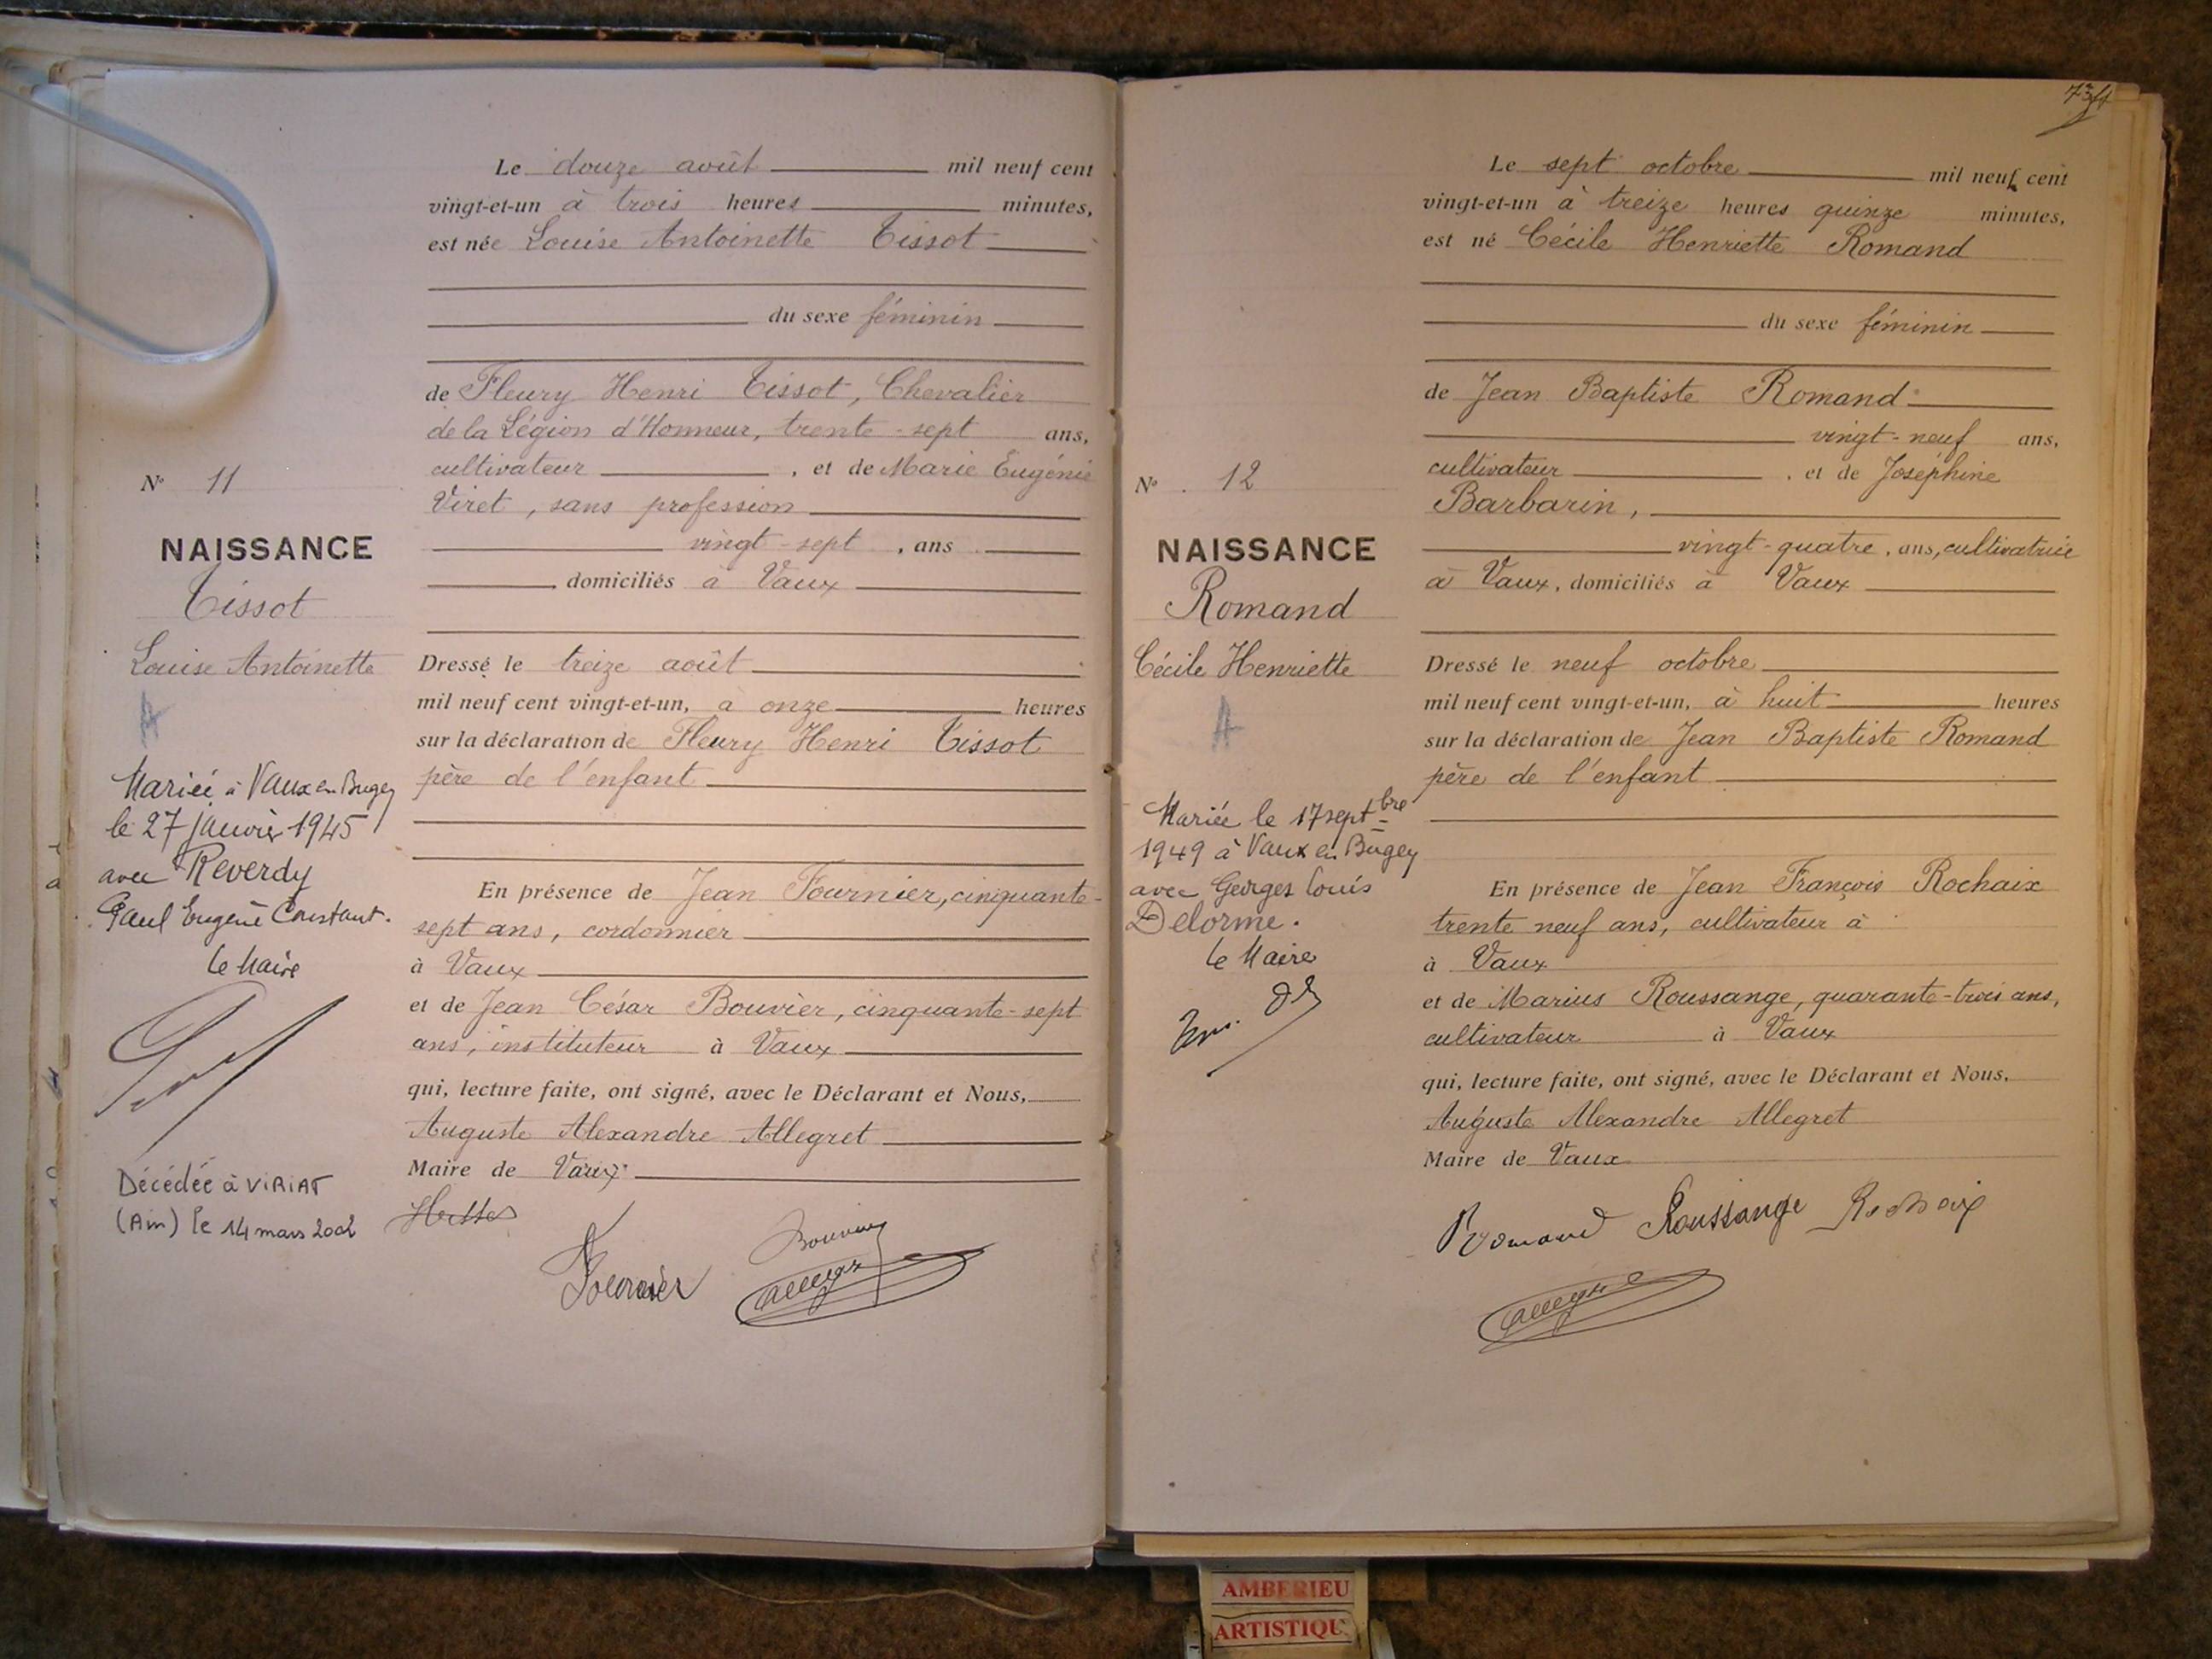 Le douze août mil neuf cent
vingt-et-un à trois heures minutes,
est née Louise Antoinette Tissot
du sexe féminin
de Fleury Henri Tissot, Chevalier
de la Légion d'Honneur, trente-sept ans,
cultivateur , et de Marie Eugénie
Viret, sans profession
vingt-sept , ans
domiciliés à Vaux
Dressé le treize août
mil neuf cent vingt-et-un, à onze heures
sur la déclaration de Fleury Henri Tissot
père de l'enfant
En présence de Jean Fournier, cinquante-
sept ans, cordonnier
à Vaux
et de Jean César Bouvier, cinquante-sept
ans, instituteur à Vaux
qui, lecture faite, ont signé, avec le Déclarant et Nous,
Auguste Alexandre Allegret
Maire de Vaux
Fournier
Bouvier
Allegret
N° 11
NAISSANCE
Tissot
Louise Antoinette
A
Mariée à Vaux en Bugey
le 27 janvier 1945
avec Reverdy
Paul Eugene Constant.
le Maire
Décédée à VIRIAT
(Ain) le 14 mars 2002
Le sept octobre mil neuf cent
vingt-et-un à treize heures quinze minutes,
est né Cécile Henriette Romand
du sexe féminin
de Jean Baptiste Romand
vingt-neuf ans,
cultivateur , et de Joséphine
Barbarin,
vingt-quatre, ans, cultivatrice
à Vaux, domiciliés à Vaux
Dressé le neuf octobre
mil neuf cent vingt-et-un, à huit heures
sur la déclaration de Jean Baptiste Romand
père de l'enfant
En présence de Jean François Rochaix
trente neuf ans, cultivateur à
à Vaux
et de Marius Roussange, quarante-trois ans,
cultivateur à Vaux
qui, lecture faite, ont signé, avec le Déclarant et Nous,
Auguste Alexandre Allegret
Maire de Vaux
Romand Roussange Rochaix
Allegret
N° 12
NAISSANCE
Romand
Cécile Henriette
A
Mariée le 17 septbre
1949 à Vaux en Bugey
avec Georges Louis
Delorme.
le Maire
AMBERIEU
ARTISTIQU